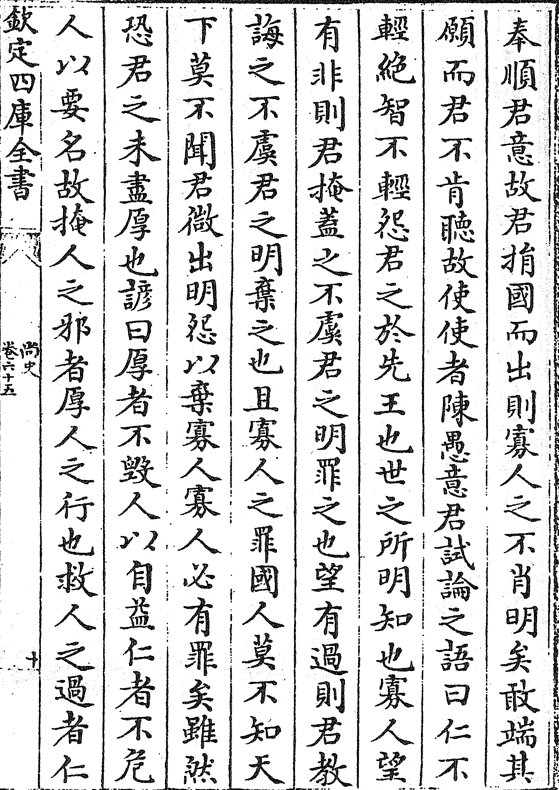 奉順君意故君捐國而出則寡人之不肖明矣敢端其
願而君不肯聽故使使者陳愚意君試論之語曰仁不
輕絶智不輕怨君之於先王也世之所明知也寡人望
有非則君掩蓋之不虞君之明罪之也望有過則君教
誨之不虞君之明棄之也且寡人之罪國人莫不知天
下莫不聞君微出明怨以棄寡人寡人必有罪矣雖然
恐君之未盡厚也諺曰厚者不毀人以自益仁者不危
人以要名故掩人之邪者厚人之行也救人之過者仁
欽定四庫全書
尚史
卷六十五
十